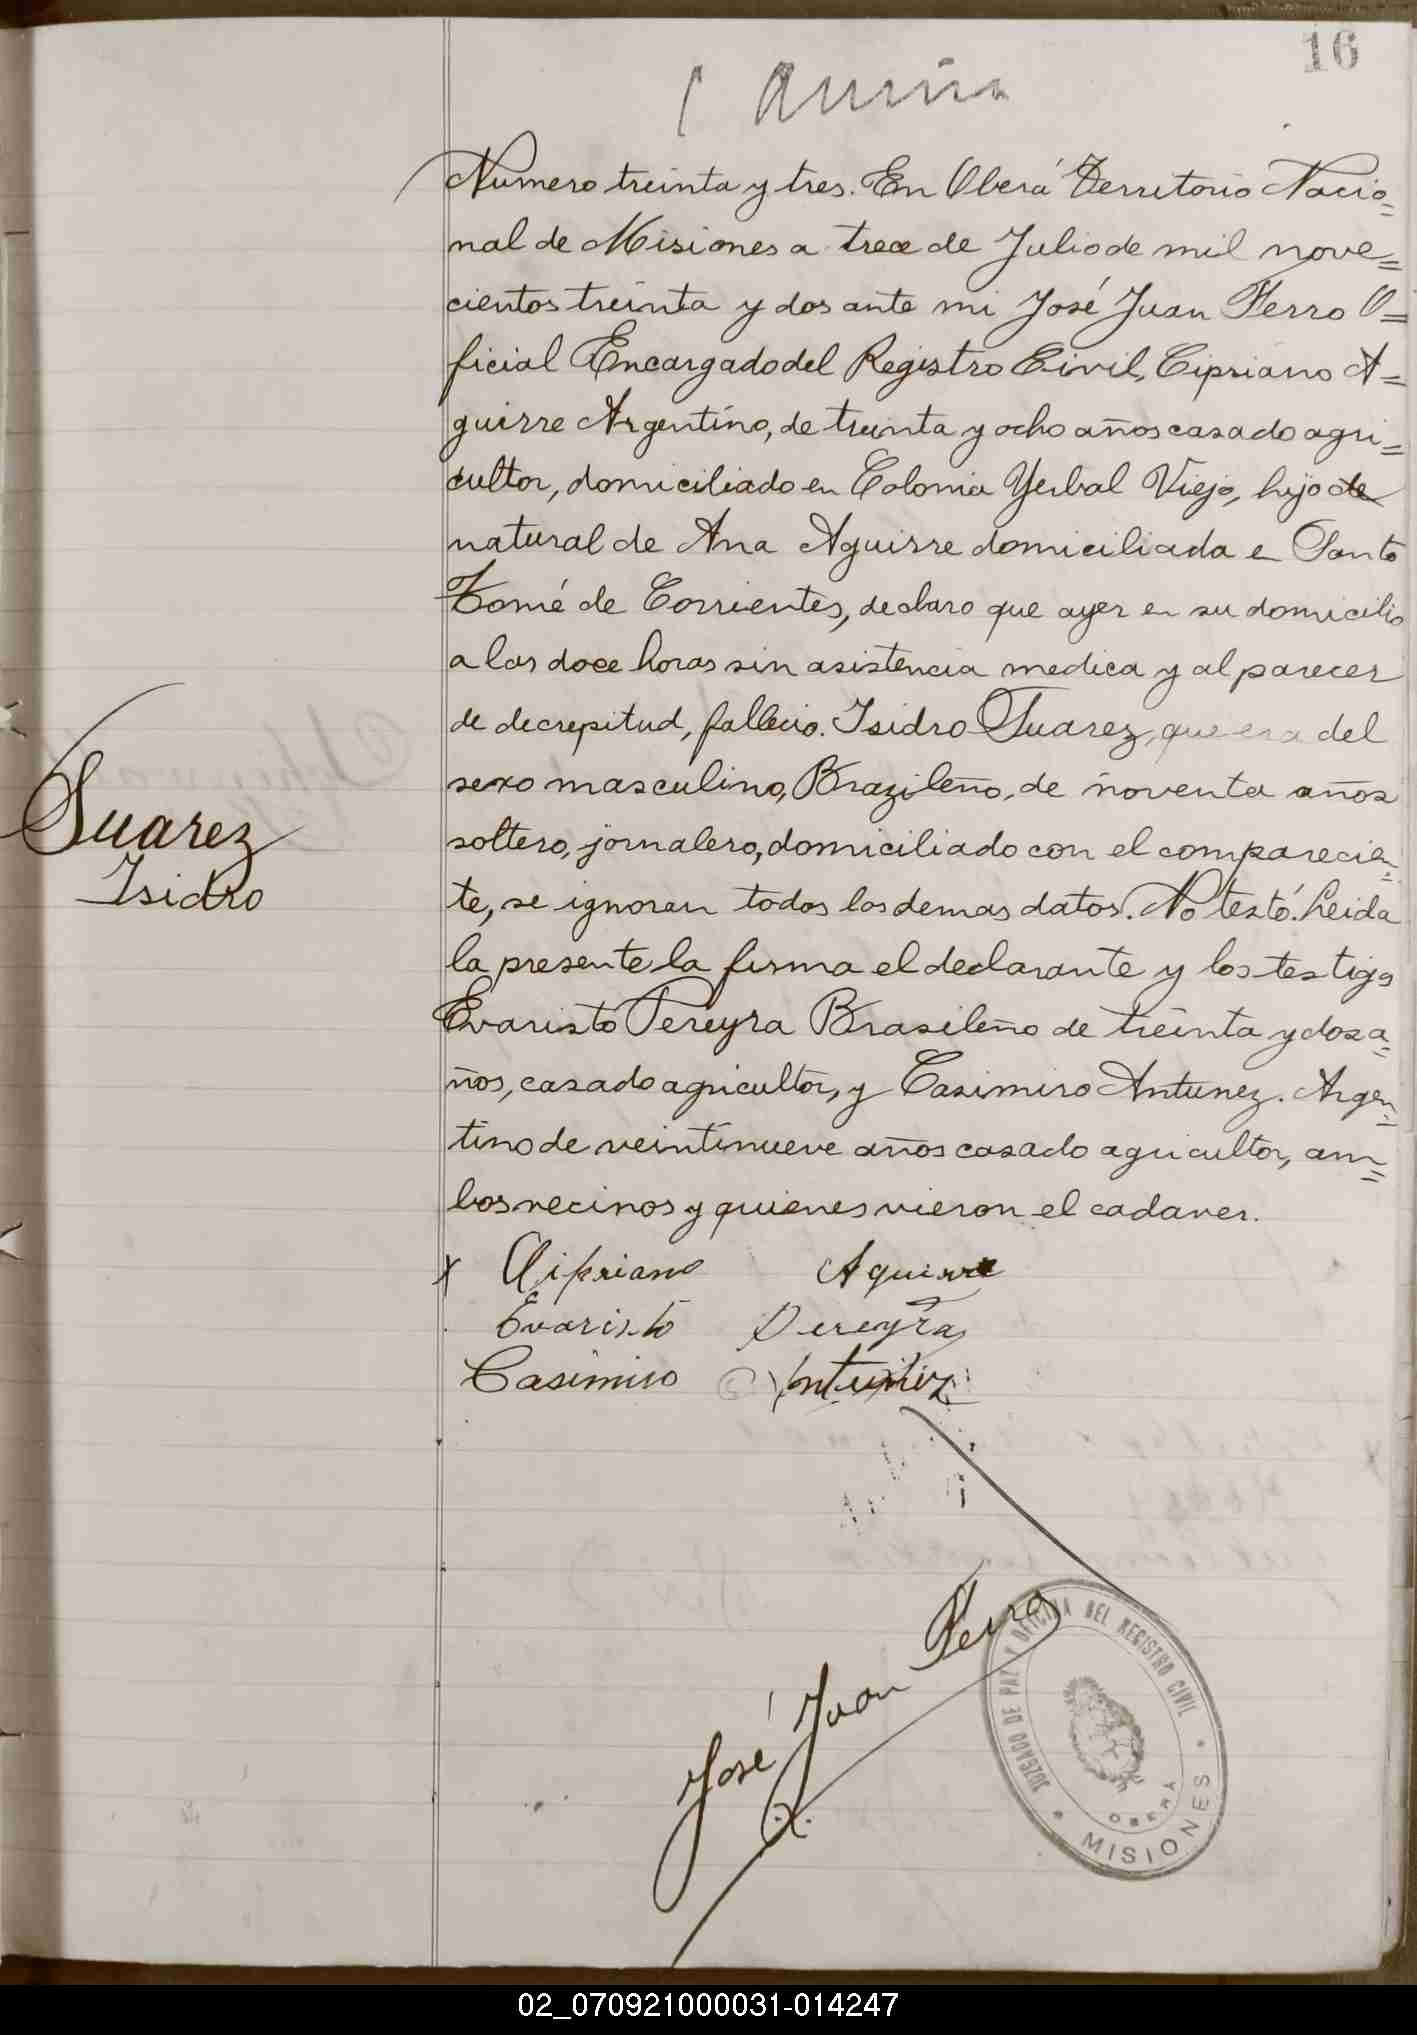 16
Numero treinta y tres. En Oberá Territorio Nacio=
nal de Misiones a trece de Julio de mil nove=
cientos treinta y dos ante mi José Juan Ferro O=
ficial Encargado del Registro Civil, Cipriano A=
guirre Argentino, de treinta y ocho años casado agri=
cultor, domiciliado en Colonia Yerbal Viejo, hijo de
natural de Ana Aguirre domiciliada e Santo
Tomé de Corrientes, declaro que ayer en su domicilio
a las doce horas sin asistencia medica y al parecer
de decrepitud, fallecio. Isidro Suarez, que era del
sexo masculino, Brazileño, de noventa años
soltero, jornalero, domiciliado con el comparecien=
te, se ignoran todos los demas datos. No testó. Leida
la presente la firma el declarante y los testigos
Evaristo Pereyra Brasileño de treinta y dos a=
ños, casado agricultor, y Casimiro Antunez. Argen=
tino de veintinueve años casado agricultor, am=
bos vecinos y quienes vieron el cadaver.
Suarez
Isidro
x Cipriano Aguirre
Evaristo Pereyra
Casimiro Antunez
José Juan Ferro
JUZGADO DE PAZ Y OFICINA DEL REGISTRO CIVIL
OBERÁ
* MISIONES *
02_070921000031-014247